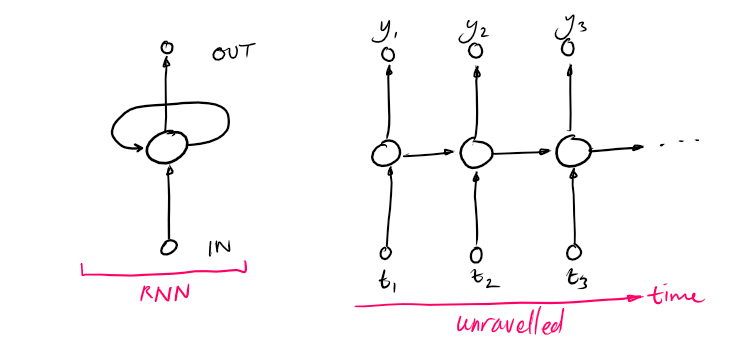 OUT
IN
RNN
y₁ y₂ y₃
. . . .
t₁ t₂ t₃
time
unravelled